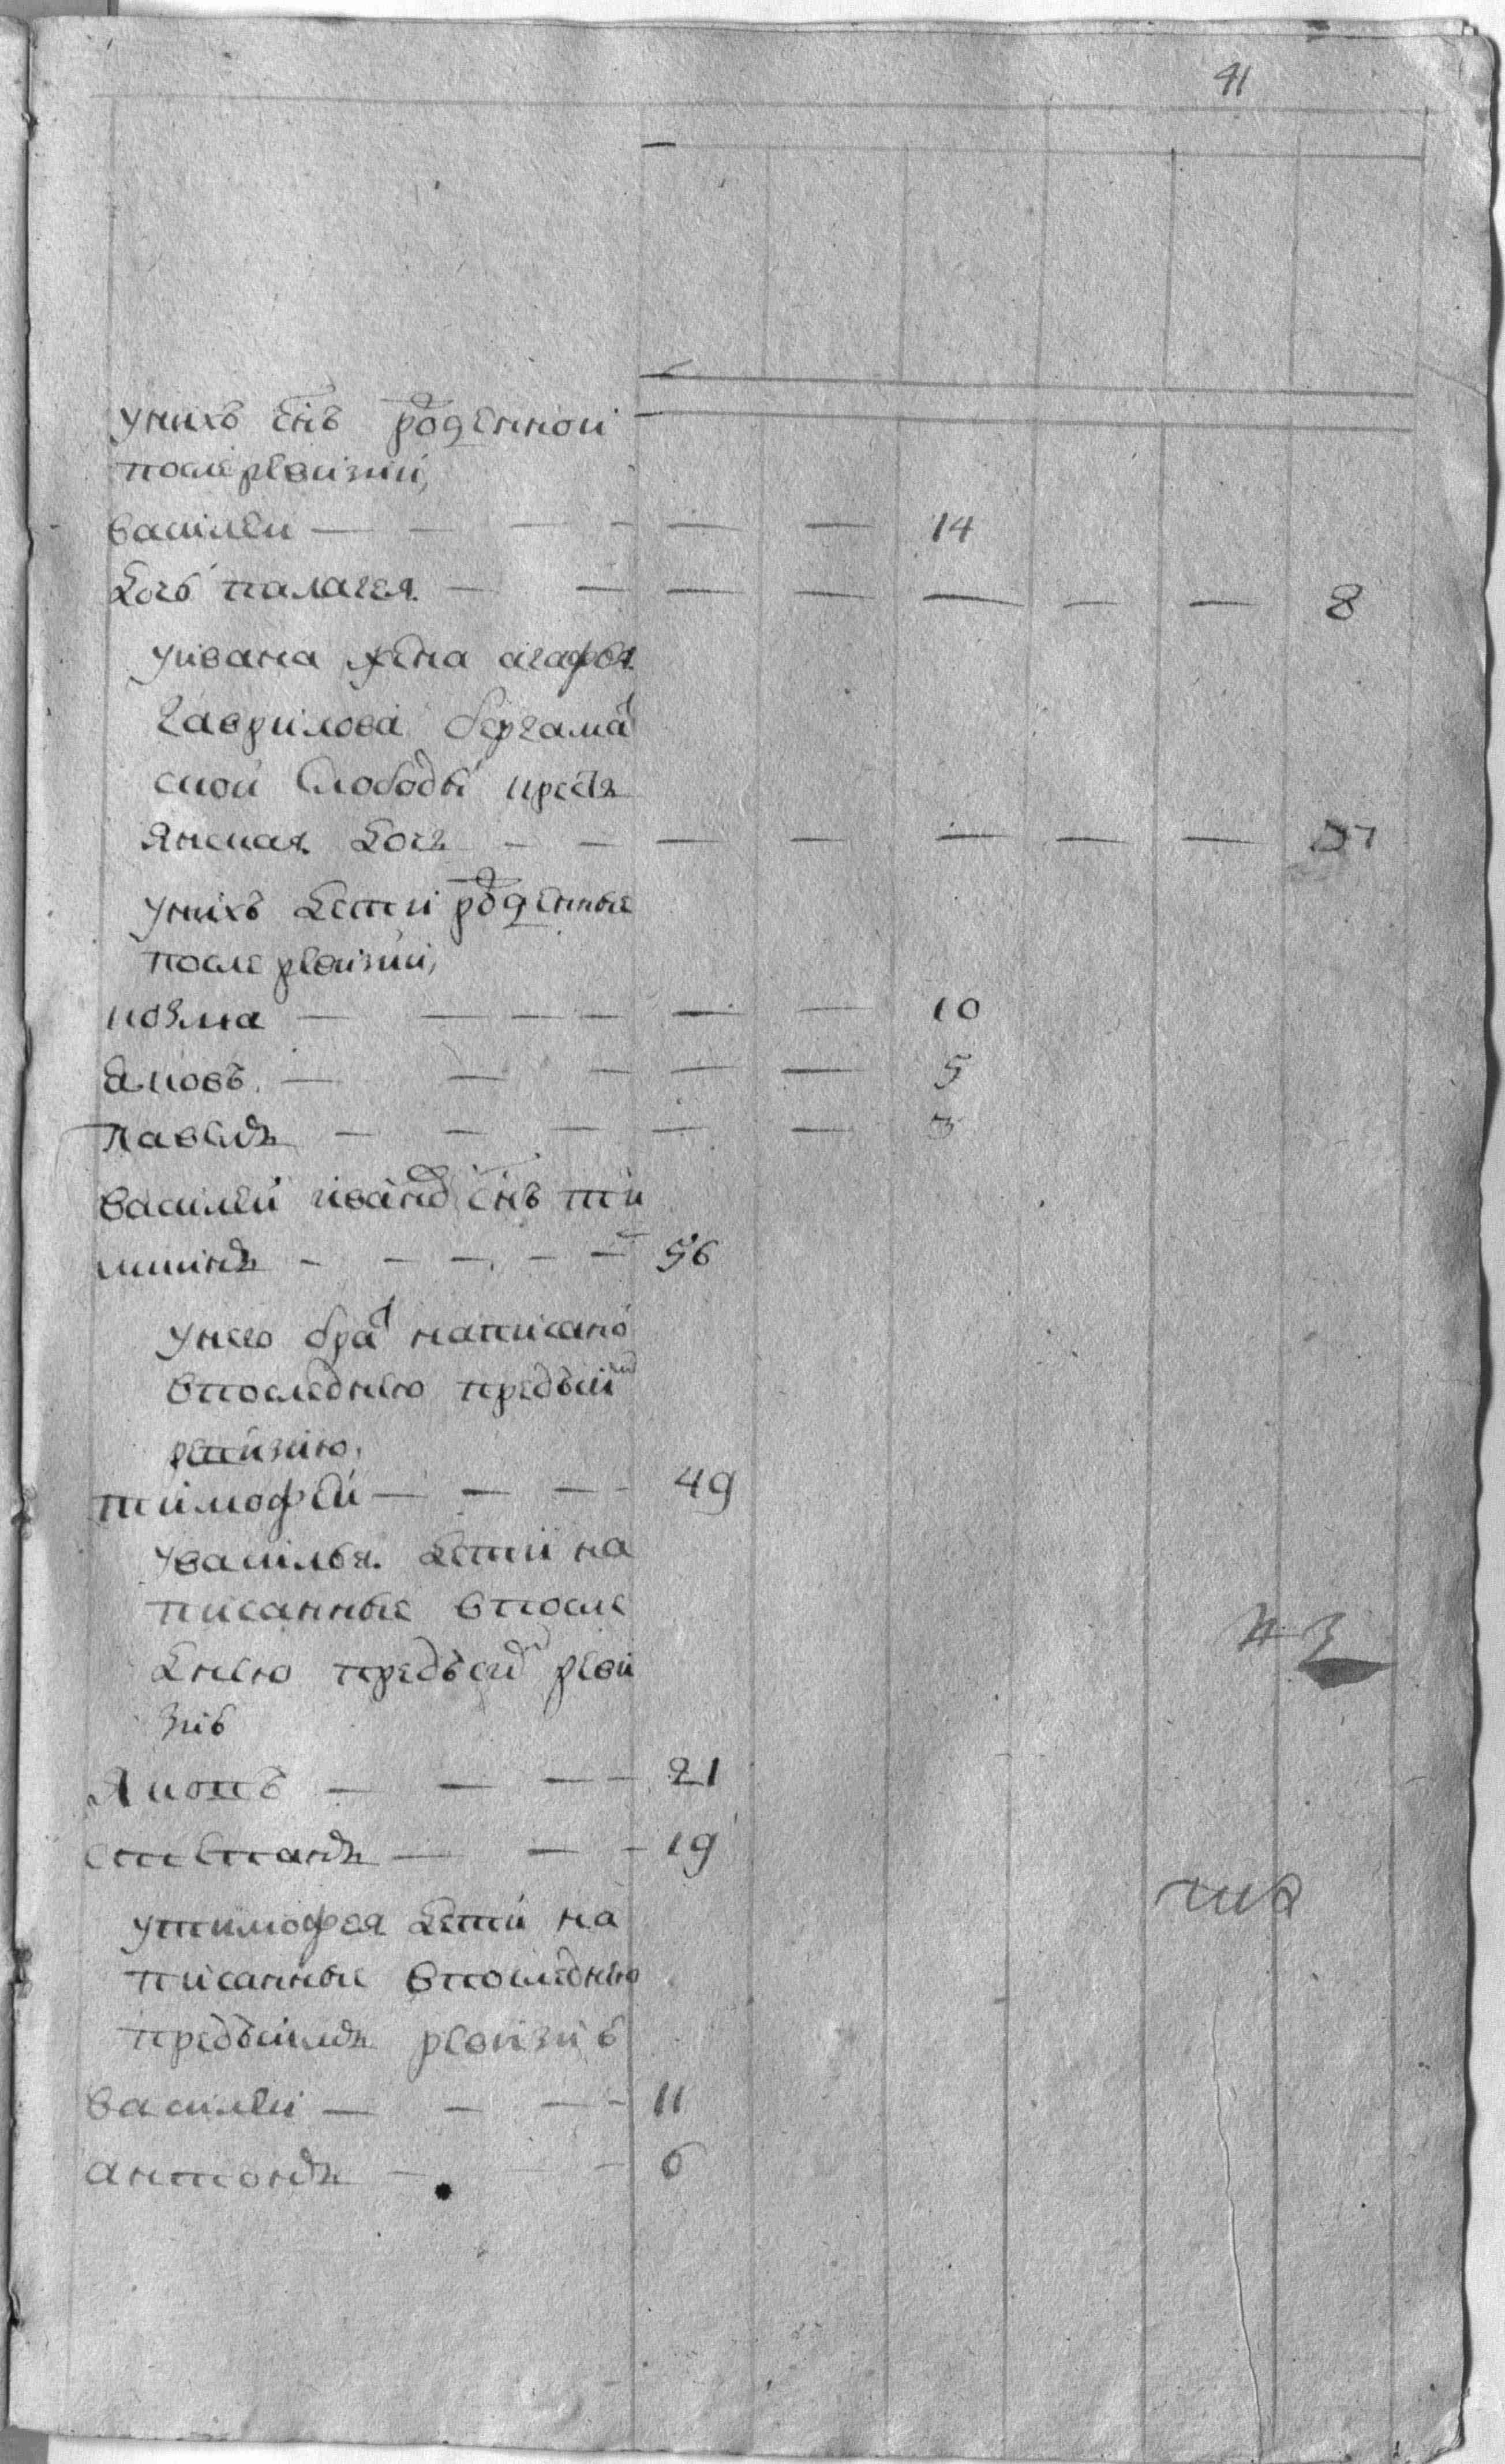 41
унихъ снъ рожденнои
после ревизии,
василеи — 14
дочь палагея — 8
уивана жена агафья
гаврилова бергама
ской слободы кресть
янская дочь —
унихъ детеи рожденные
после ревизии,
козма — 10
яковъ — 5
павелъ — 3
василеи иванов снъ ти
шинъ — 56
унего брат написано
впоследнею предъид
ревизию,
тимофеи — 49
увасилья детеи на
писанные впосле
днею предъид реви
зиь
якопъ — 21
степанъ — 19
утимофея детеи на
писанные впоследнею
ревизиь
василеи — 11
антонъ — 6